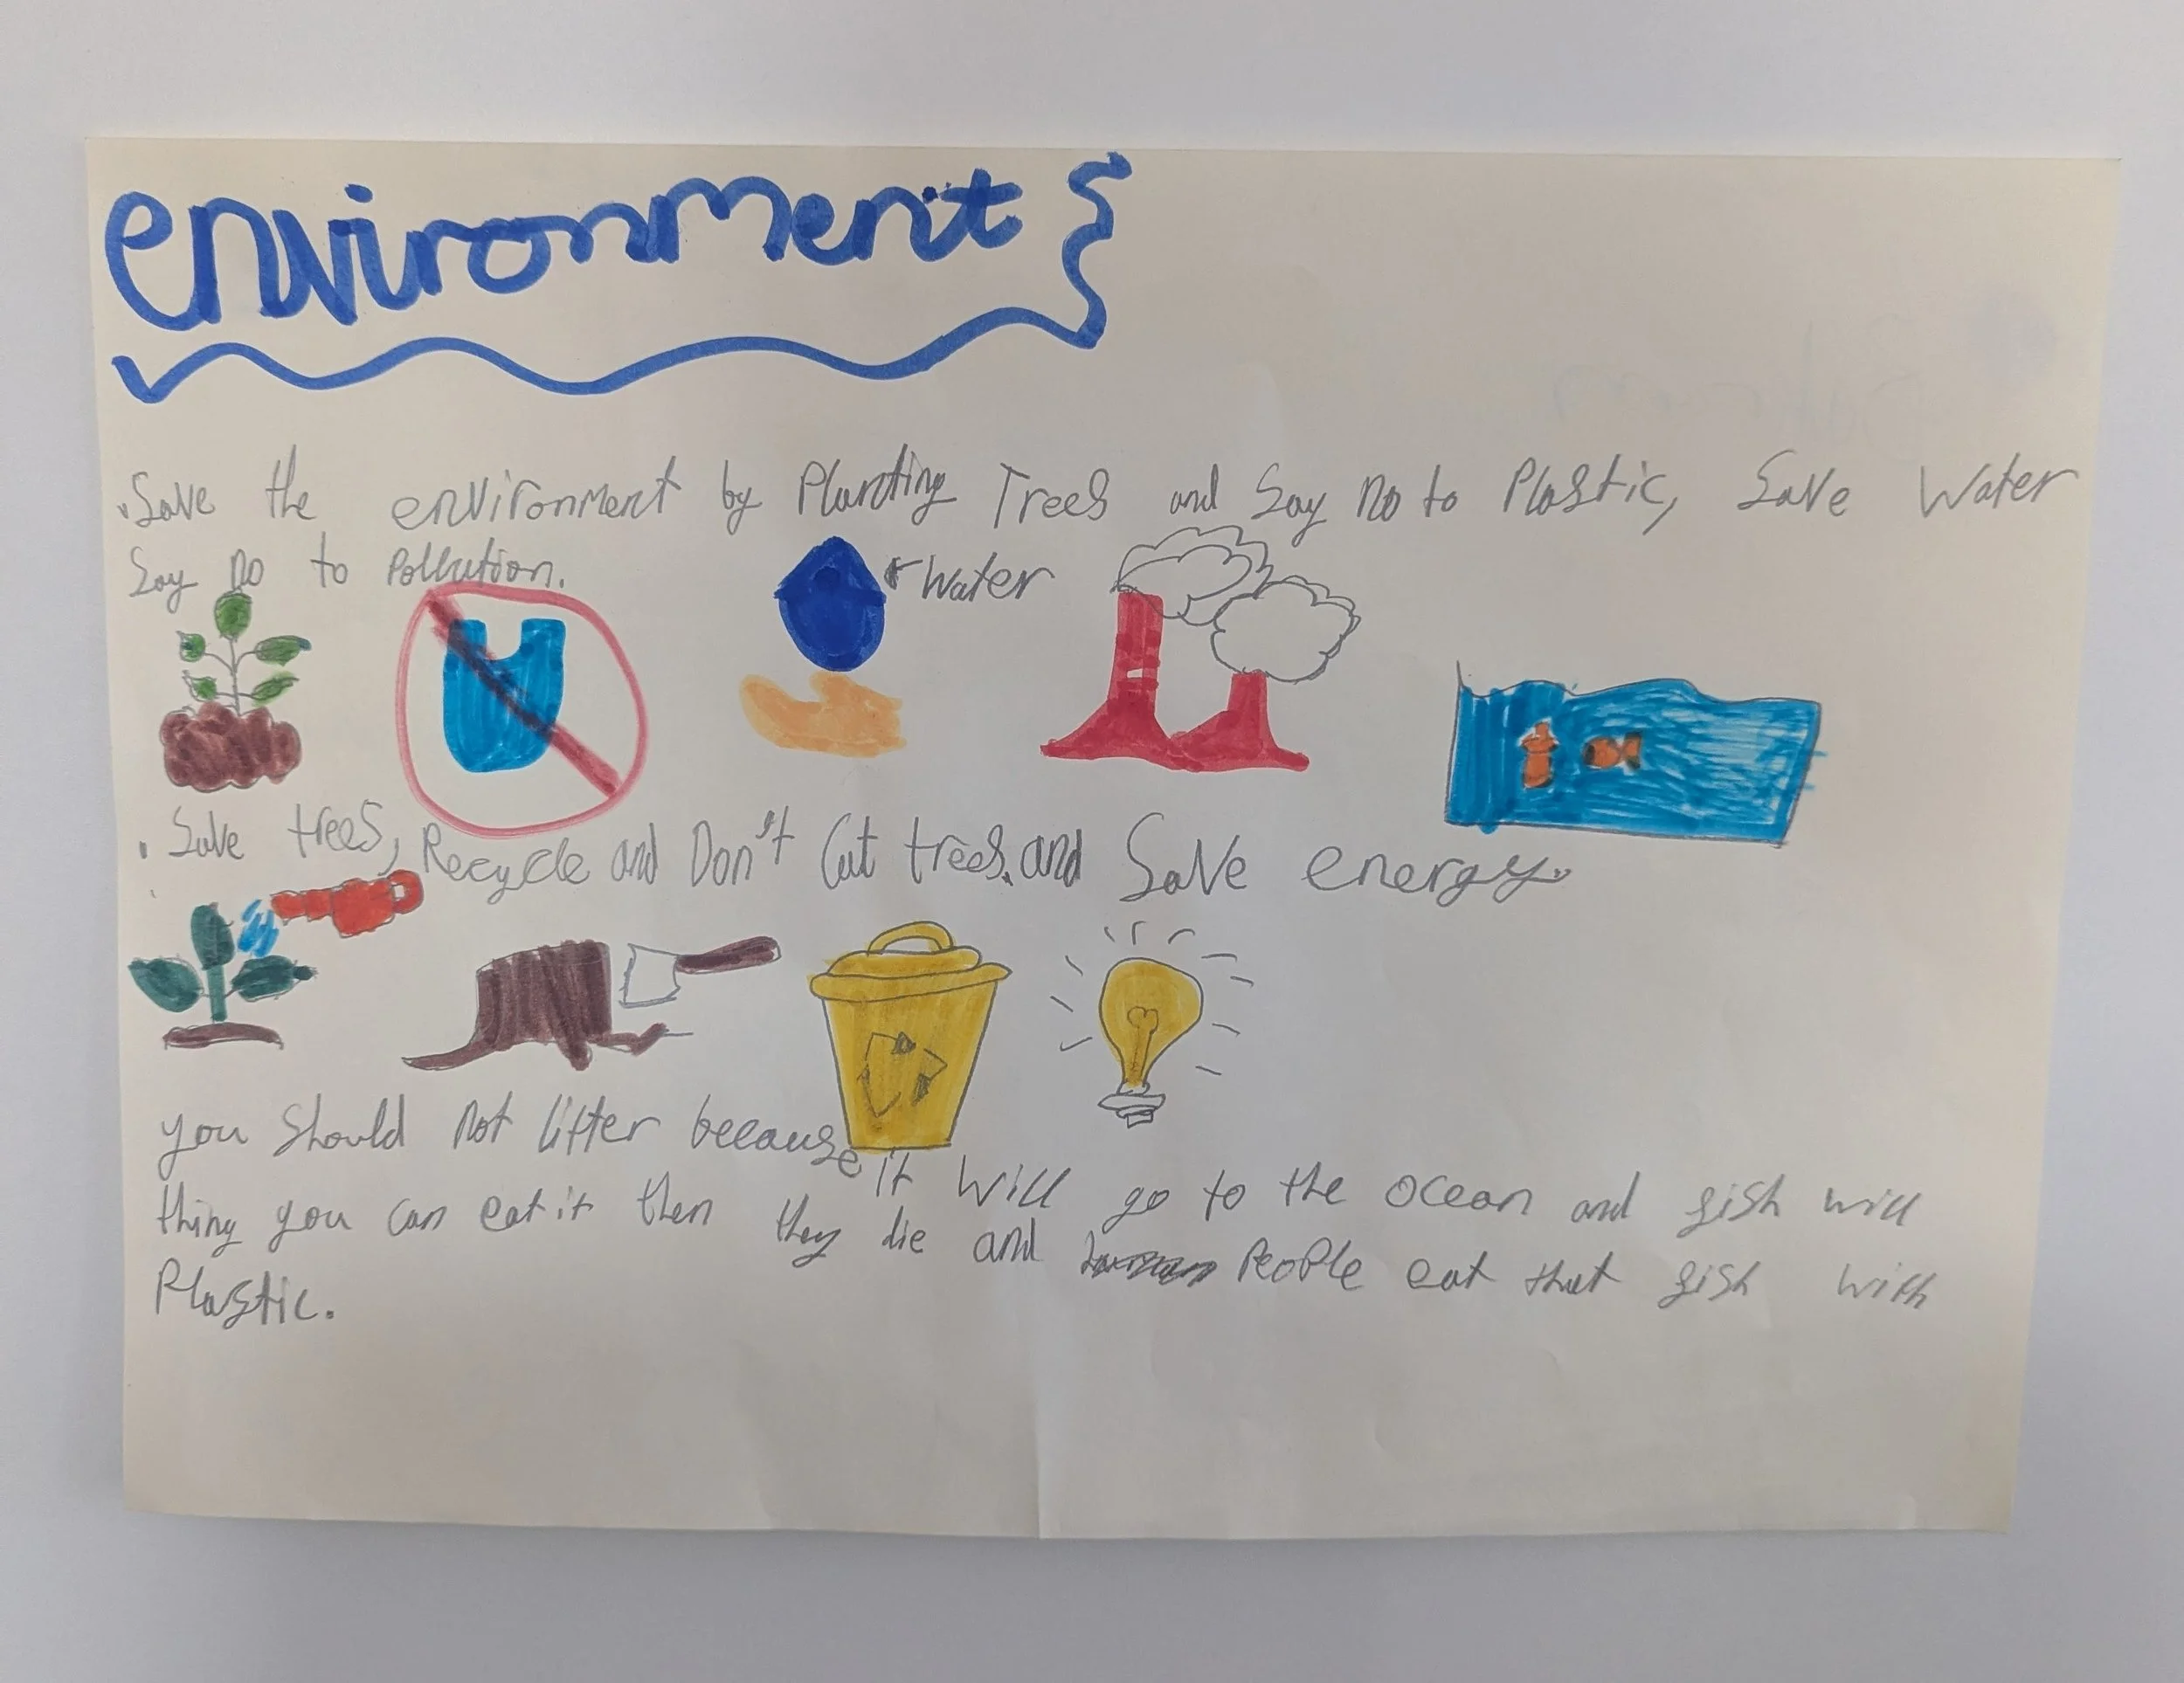 environment
.Save the environment by Planting Trees and Say no to Plastic, Save Water
Say no to Pollution.
Water
. Save trees, Recycle and Don't Cut trees. and Save energy.
you should not litter because it will go to the ocean and fish will
thing you can eat it then they die and People eat that fish with
Plastic.